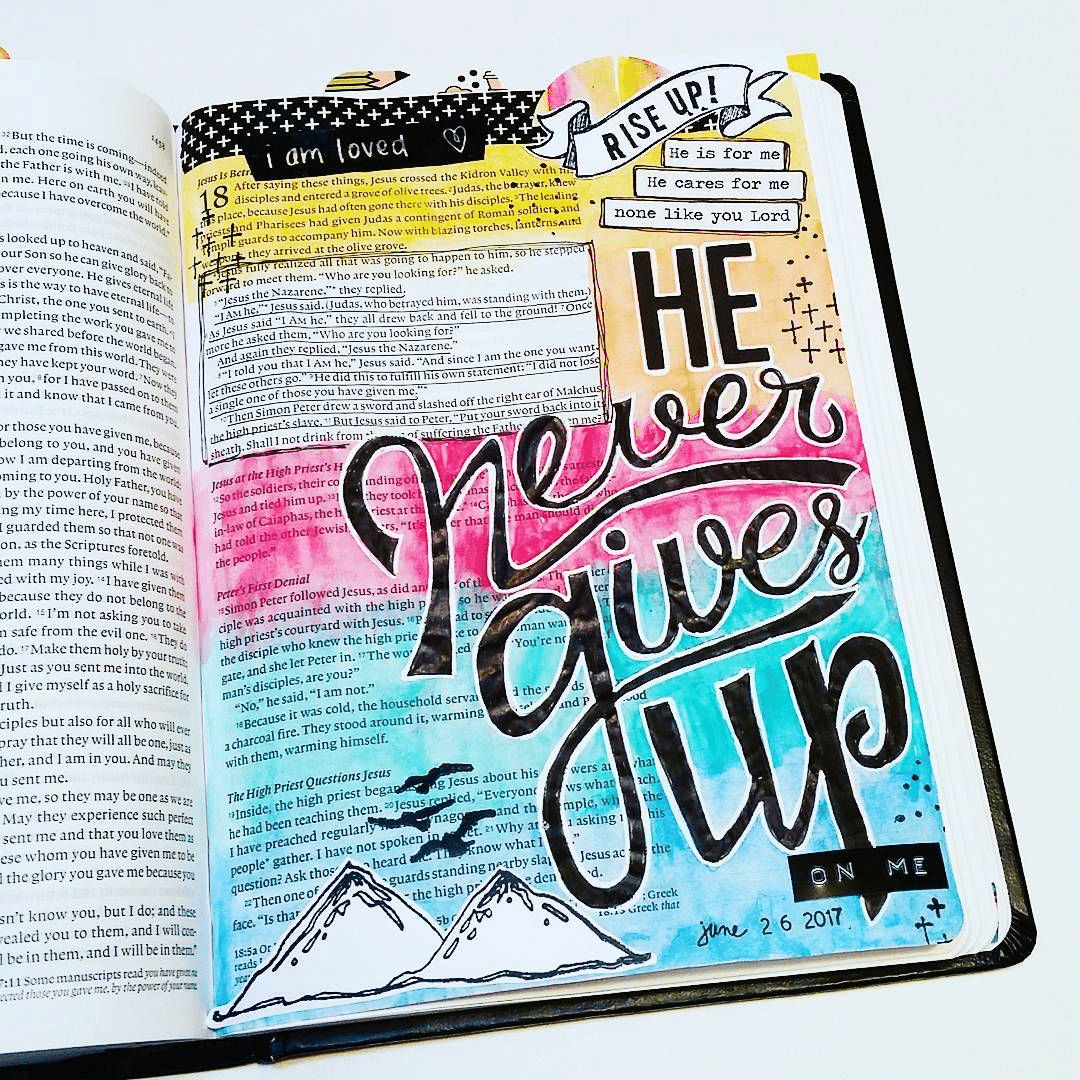 32 But the time is coming—indeed
1458
each one going his own way,
the Father is with me. 33 I have told
in me. Here on earth you will have
because I have overcome the world."
looked up to heaven and said,
your Son so he can give glory back
over everyone. He gives eternal
is the way to have eternal life—
Christ, the one you sent to earth.
completing the work you gave me
we shared before the world began.
gave me from this world. They were
they have kept your word. 7 Now they
you, 8 for I have passed on to them
it and know that I came from you,
for those you have given me, because
belong to you, and you have given
now I am departing from the world;
coming to you. Holy Father, you have
by the power of your name so that
ing my time here, I protected them
I guarded them so that not one was
on, as the Scriptures foretold.
them many things while I was with
ed with my joy. 14 I have given them
because they do not belong to the
world. 15 I'm not asking you to take
safe from the evil one. 16 They do
do. 17 Make them holy by your truth;
Just as you sent me into the world,
I give myself as a holy sacrifice for
truth.
ciples but also for all who will ever
pray that they will all be one, just as
her, and I am in you. And may they
u sent me.
ve me, so they may be one as we are
May they experience such perfect
sent me and that you love them as
these whom you have given me to be
l the glory you gave me because you
sn't know you, but I do; and these
vealed you to them, and I will con-
l be in them, and I will be in them."
7:11 Some manuscripts read you have given me
ected those you gave me, by the power of your name
i am loved
RISE UP!
He is for me
He cares for me
none like you Lord
Jesus Is Betr
18 After saying these things, Jesus crossed the Kidron Valley with his
disciples and entered a grove of olive trees. 2 Judas, the betrayer, knew
this place, because Jesus had often gone there with his disciples. 3 The leading
priests and Pharisees had given Judas a contingent of Roman soldiers and
temple guards to accompany him. Now with blazing torches, lanterns, and
they arrived at the olive grove.
Jesus fully realized all that was going to happen to him, so he stepped
forward to meet them. "Who are you looking for?" he asked.
5 "Jesus the Nazarene,"* they replied.
"I AM he,"* Jesus said. (Judas, who betrayed him, was standing with them.)
As Jesus said "I AM he," they all drew back and fell to the ground! 7 Once
more he asked them, "Who are you looking for?"
And again they replied, "Jesus the Nazarene."
8 "I told you that I AM he," Jesus said. "And since I am the one you want,
let these others go." 9 He did this to fulfill his own statement: "I did not lose
a single one of those you have given me."*
10 Then Simon Peter drew a sword and slashed off the right ear of Malchus,
the high priest's slave. 11 But Jesus said to Peter, "Put your sword back into its
sheath. Shall I not drink from the cup of suffering the Father
HE
never
gives
up
ON ME
Jesus at the High Priest's H
12 So the soldiers, their
Jesus and tied him up. 13
in-law of Caiaphas, the
had told the other Jewish
the people."
Peter's First Denial
15 Simon Peter followed Jesus, as did
ciple was acquainted with the high
high priest's courtyard with Jesus.
the disciple who knew the high
gate, and she let Peter in. 17 The
man's disciples, are you?"
"No," he said, "I am not."
18 Because it was cold, the household
a charcoal fire. They stood around it, warming
with them, warming himself.
The High Priest Questions Jesus
19 Inside, the high priest began asking Jesus about his
he had been teaching them. 20 Jesus replied, "Everyone
I have preached regularly
people* gather. I have not spoken
question? Ask those
22 Then one of
face. "Is that
18:5a Or
june 26 2017.